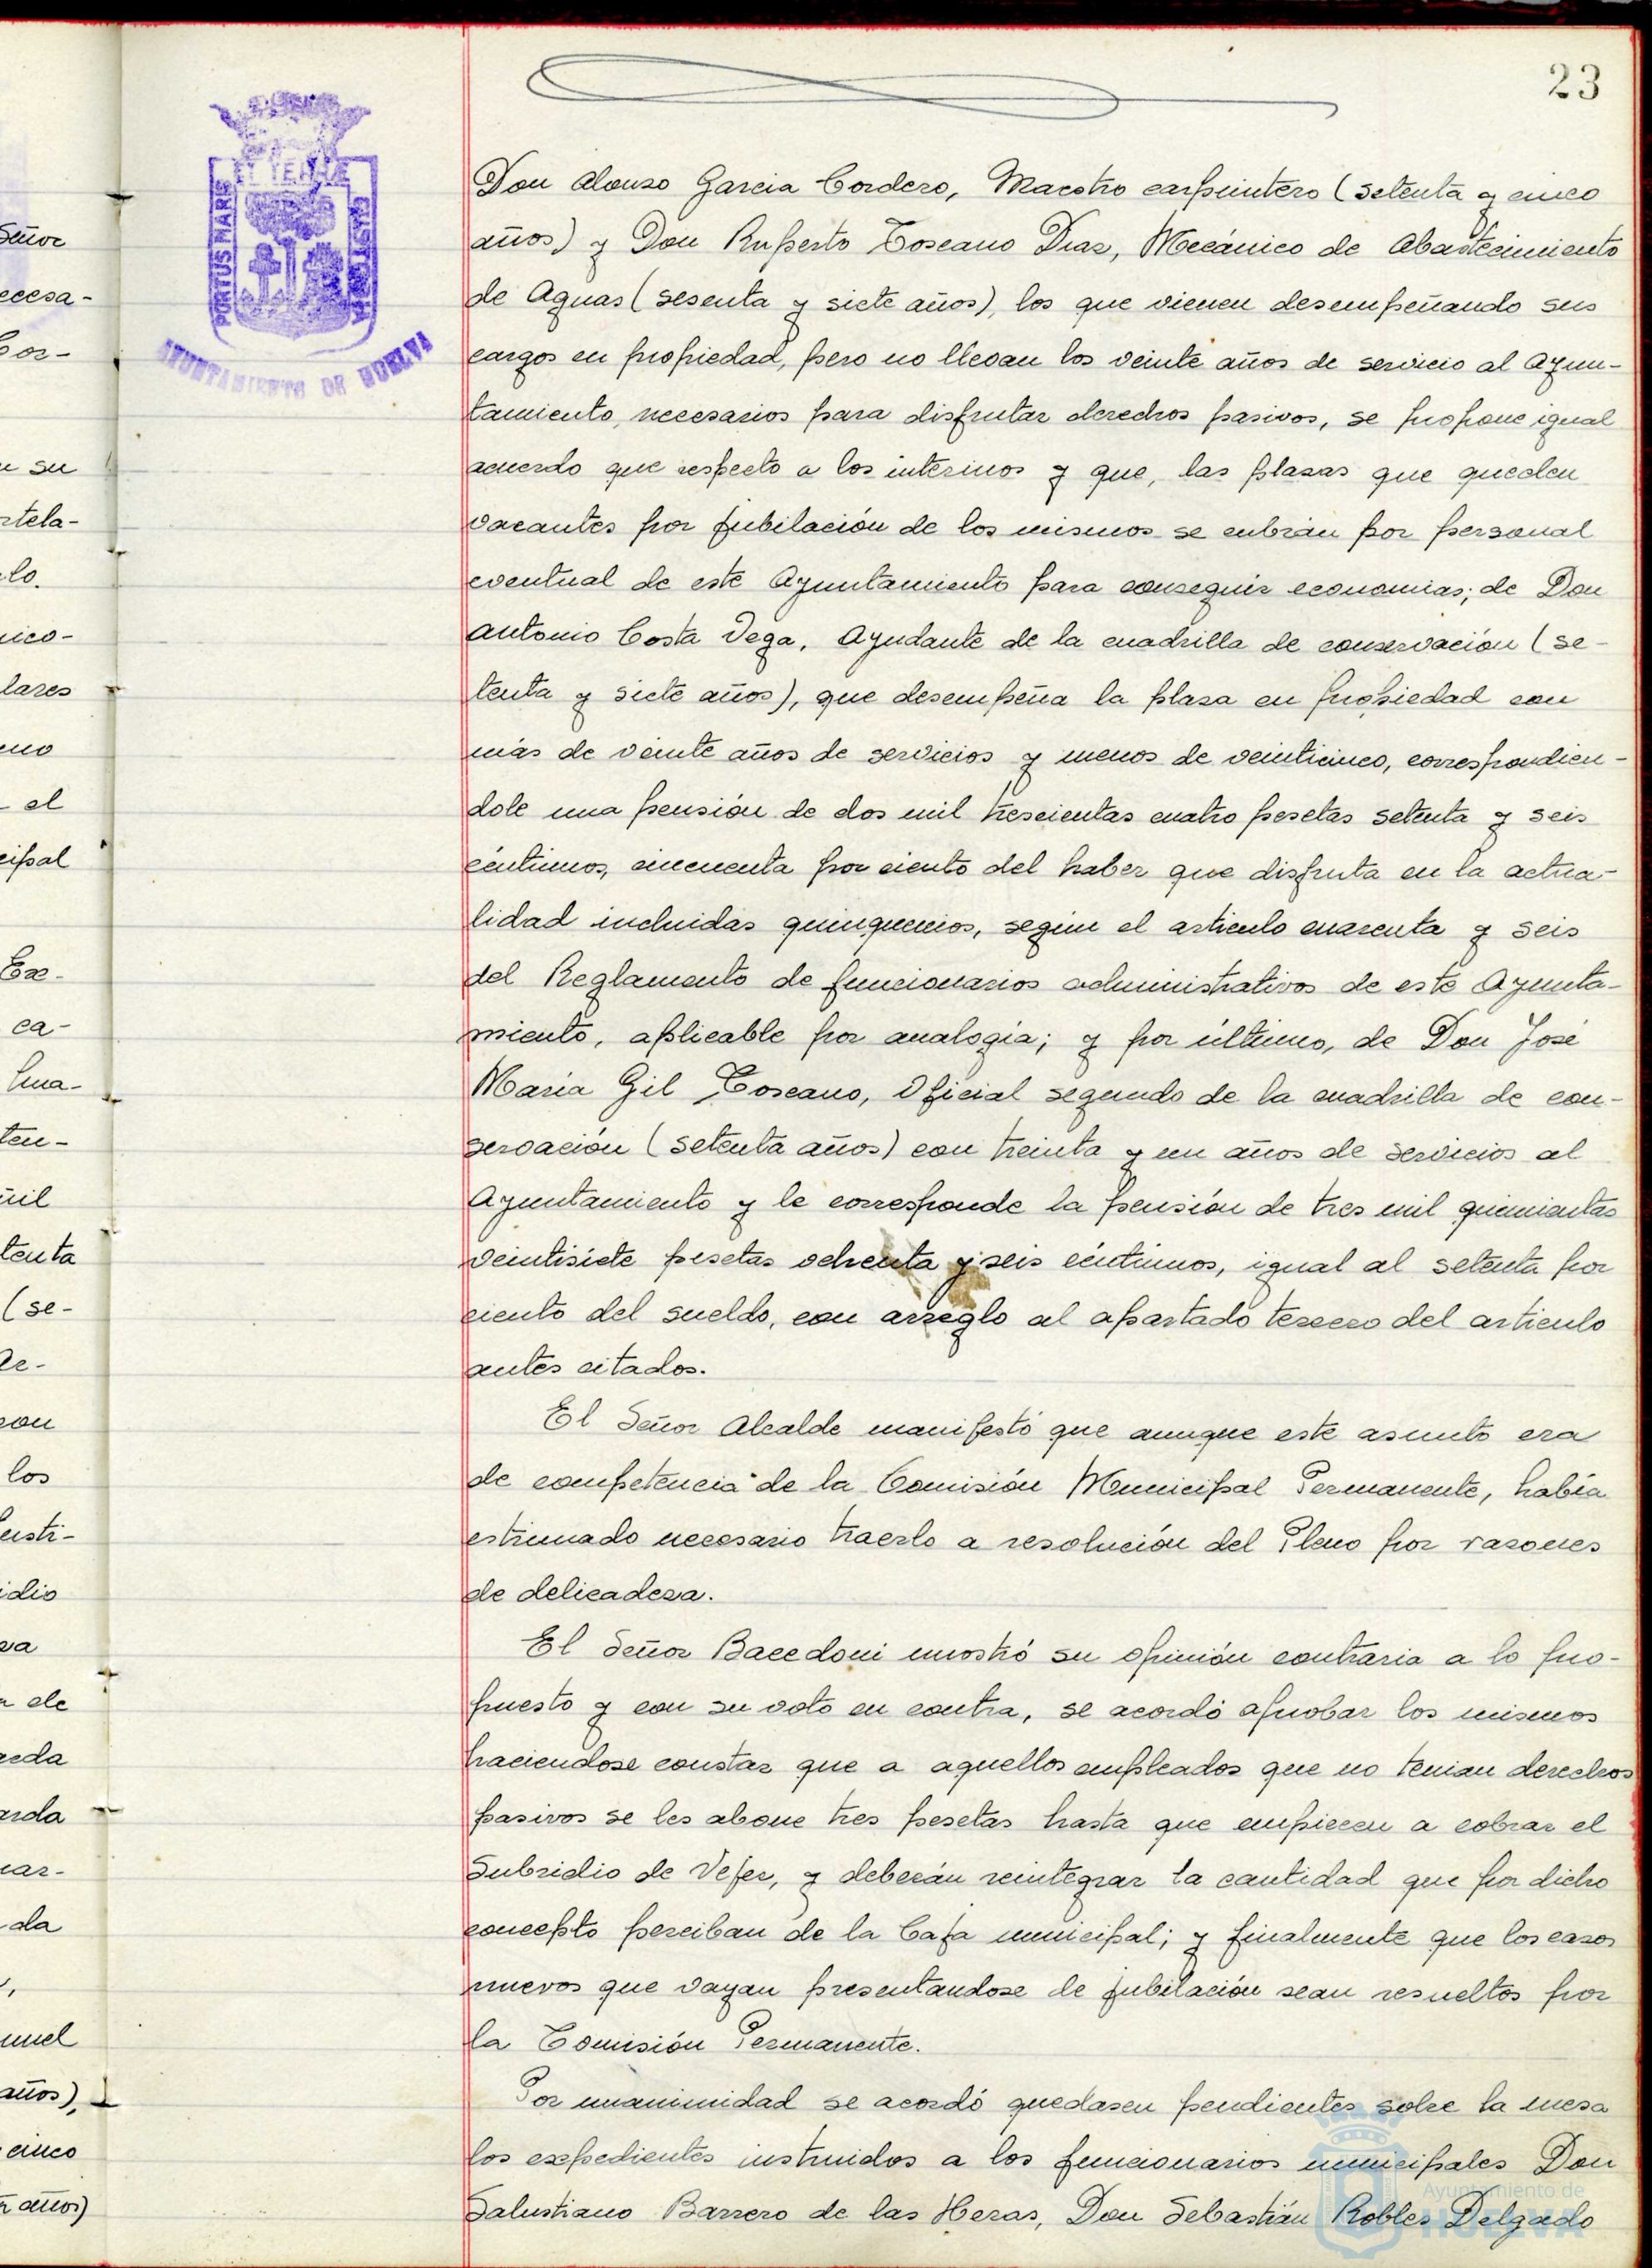 23
ET TERRÆ
PORTUS MARIS
AYUNTAMIENTO DE HUELVA
Don Alonso Garcia Cordero, Maestro carpintero (setenta y cinco
años) y Don Ruperto Toscano Diaz, Mecánico de Abastecimiento
de Aguas (sesenta y siete años), los que vienen desempeñando sus
cargos en propiedad, pero no llevan los veinte años de servicio al Ayun-
tamiento, necesarios para disfrutar derechos pasivos, se propone igual
acuerdo que respecto a los interinos y que, las plazas que queden
vacantes por jubilación de los mismos se cubrán por personal
eventual de este Ayuntamiento para conseguir economias; de Don
Antonio Costa Vega, Ayudante de la cuadrilla de conservación (se-
tenta y siete años), que desempeña la plaza en propiedad con
más de veinte años de servicios y menos de veinticinco, correspondien-
dole una pensión de dos mil trescientas cuatro pesetas setenta y seis
céntimos, cincuenta por ciento del haber que disfruta en la actua-
lidad incluidas quinquenios, según el articulo cuarenta y seis
del Reglamento de funcionarios administrativos de este Ayunta-
miento, aplicable por analogía; y por último, de Don José
María Gil Toscano, Oficial segundo de la cuadrilla de con-
servación (setenta años) con treinta y un años de servicios al
Ayuntamiento y le corresponde la pensión de tres mil quinientas
veintisiete pesetas ochenta y seis céntimos, igual al setenta por
ciento del sueldo, con arreglo al apartado tercero del articulo
antes citados.
El Señor Alcalde manifestó que aunque este asunto era
de competencia de la Comisión Municipal Permanente, había
estimado necesario traerlo a resolución del Pleno por razones
de delicadeza.
El Señor Bacedoni mostró su opinión contraria a lo pro-
puesto y con su voto en contra, se acordó aprobar los mismos
haciendose constar que a aquellos empleados que no tenian derechos
pasivos se les abone tres pesetas hasta que empiecen a cobrar el
Subsidio de Vejez, y deberán reintegrar la cantidad que por dicho
concepto perciban de la Caja municipal; y finalmente que los casos
nuevos que vayan presentandose de jubilación sean resueltos por
la Comisión Permanente.
Por unanimidad se acordó quedasen pendientes sobre la mesa
los expedientes instruidos a los funcionarios municipales Don
Salustiano Barrero de las Heras, Don Sebastián Robles Delgado
Ayuntamiento de
HUELVA
Señor
ecesa-
Cor-
su
rtela-
lo.
nico-
lares
el
cipal
ca-
ten-
tenta
(se-
los
idio
de
da
años),
cinco
años)